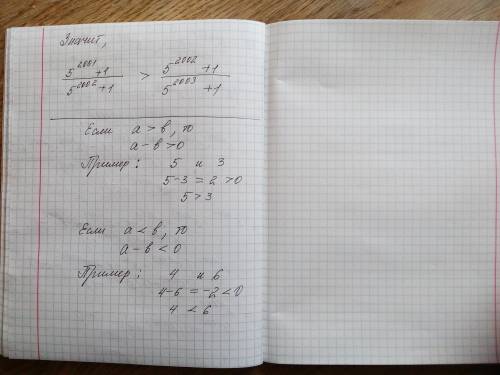 Значит,
5^2001 + 1 / 5^2002 + 1 > 5^2002 + 1 / 5^2003 + 1
Если a > b, то
a - b > 0
Пример: 5 и 3
5 - 3 = 2 > 0
5 > 3
Если a < b, то
a - b < 0
Пример: 4 и 6
4 - 6 = -2 < 0
4 < 6